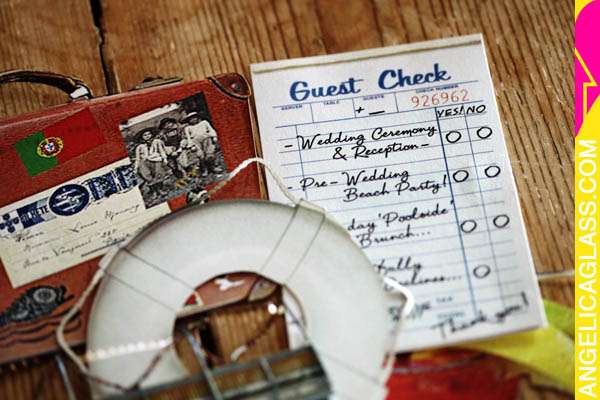 Guest Check
SERVER TABLE GUESTS CHECK NUMBER
+ — 926962
YES! NO
- Wedding Ceremony
& Reception -
- Pre - Wedding
Beach Party!
day 'Poolside'
Brunch...
fully
lines...
TAX
Thank you!
ANGELICAGLASS.COM